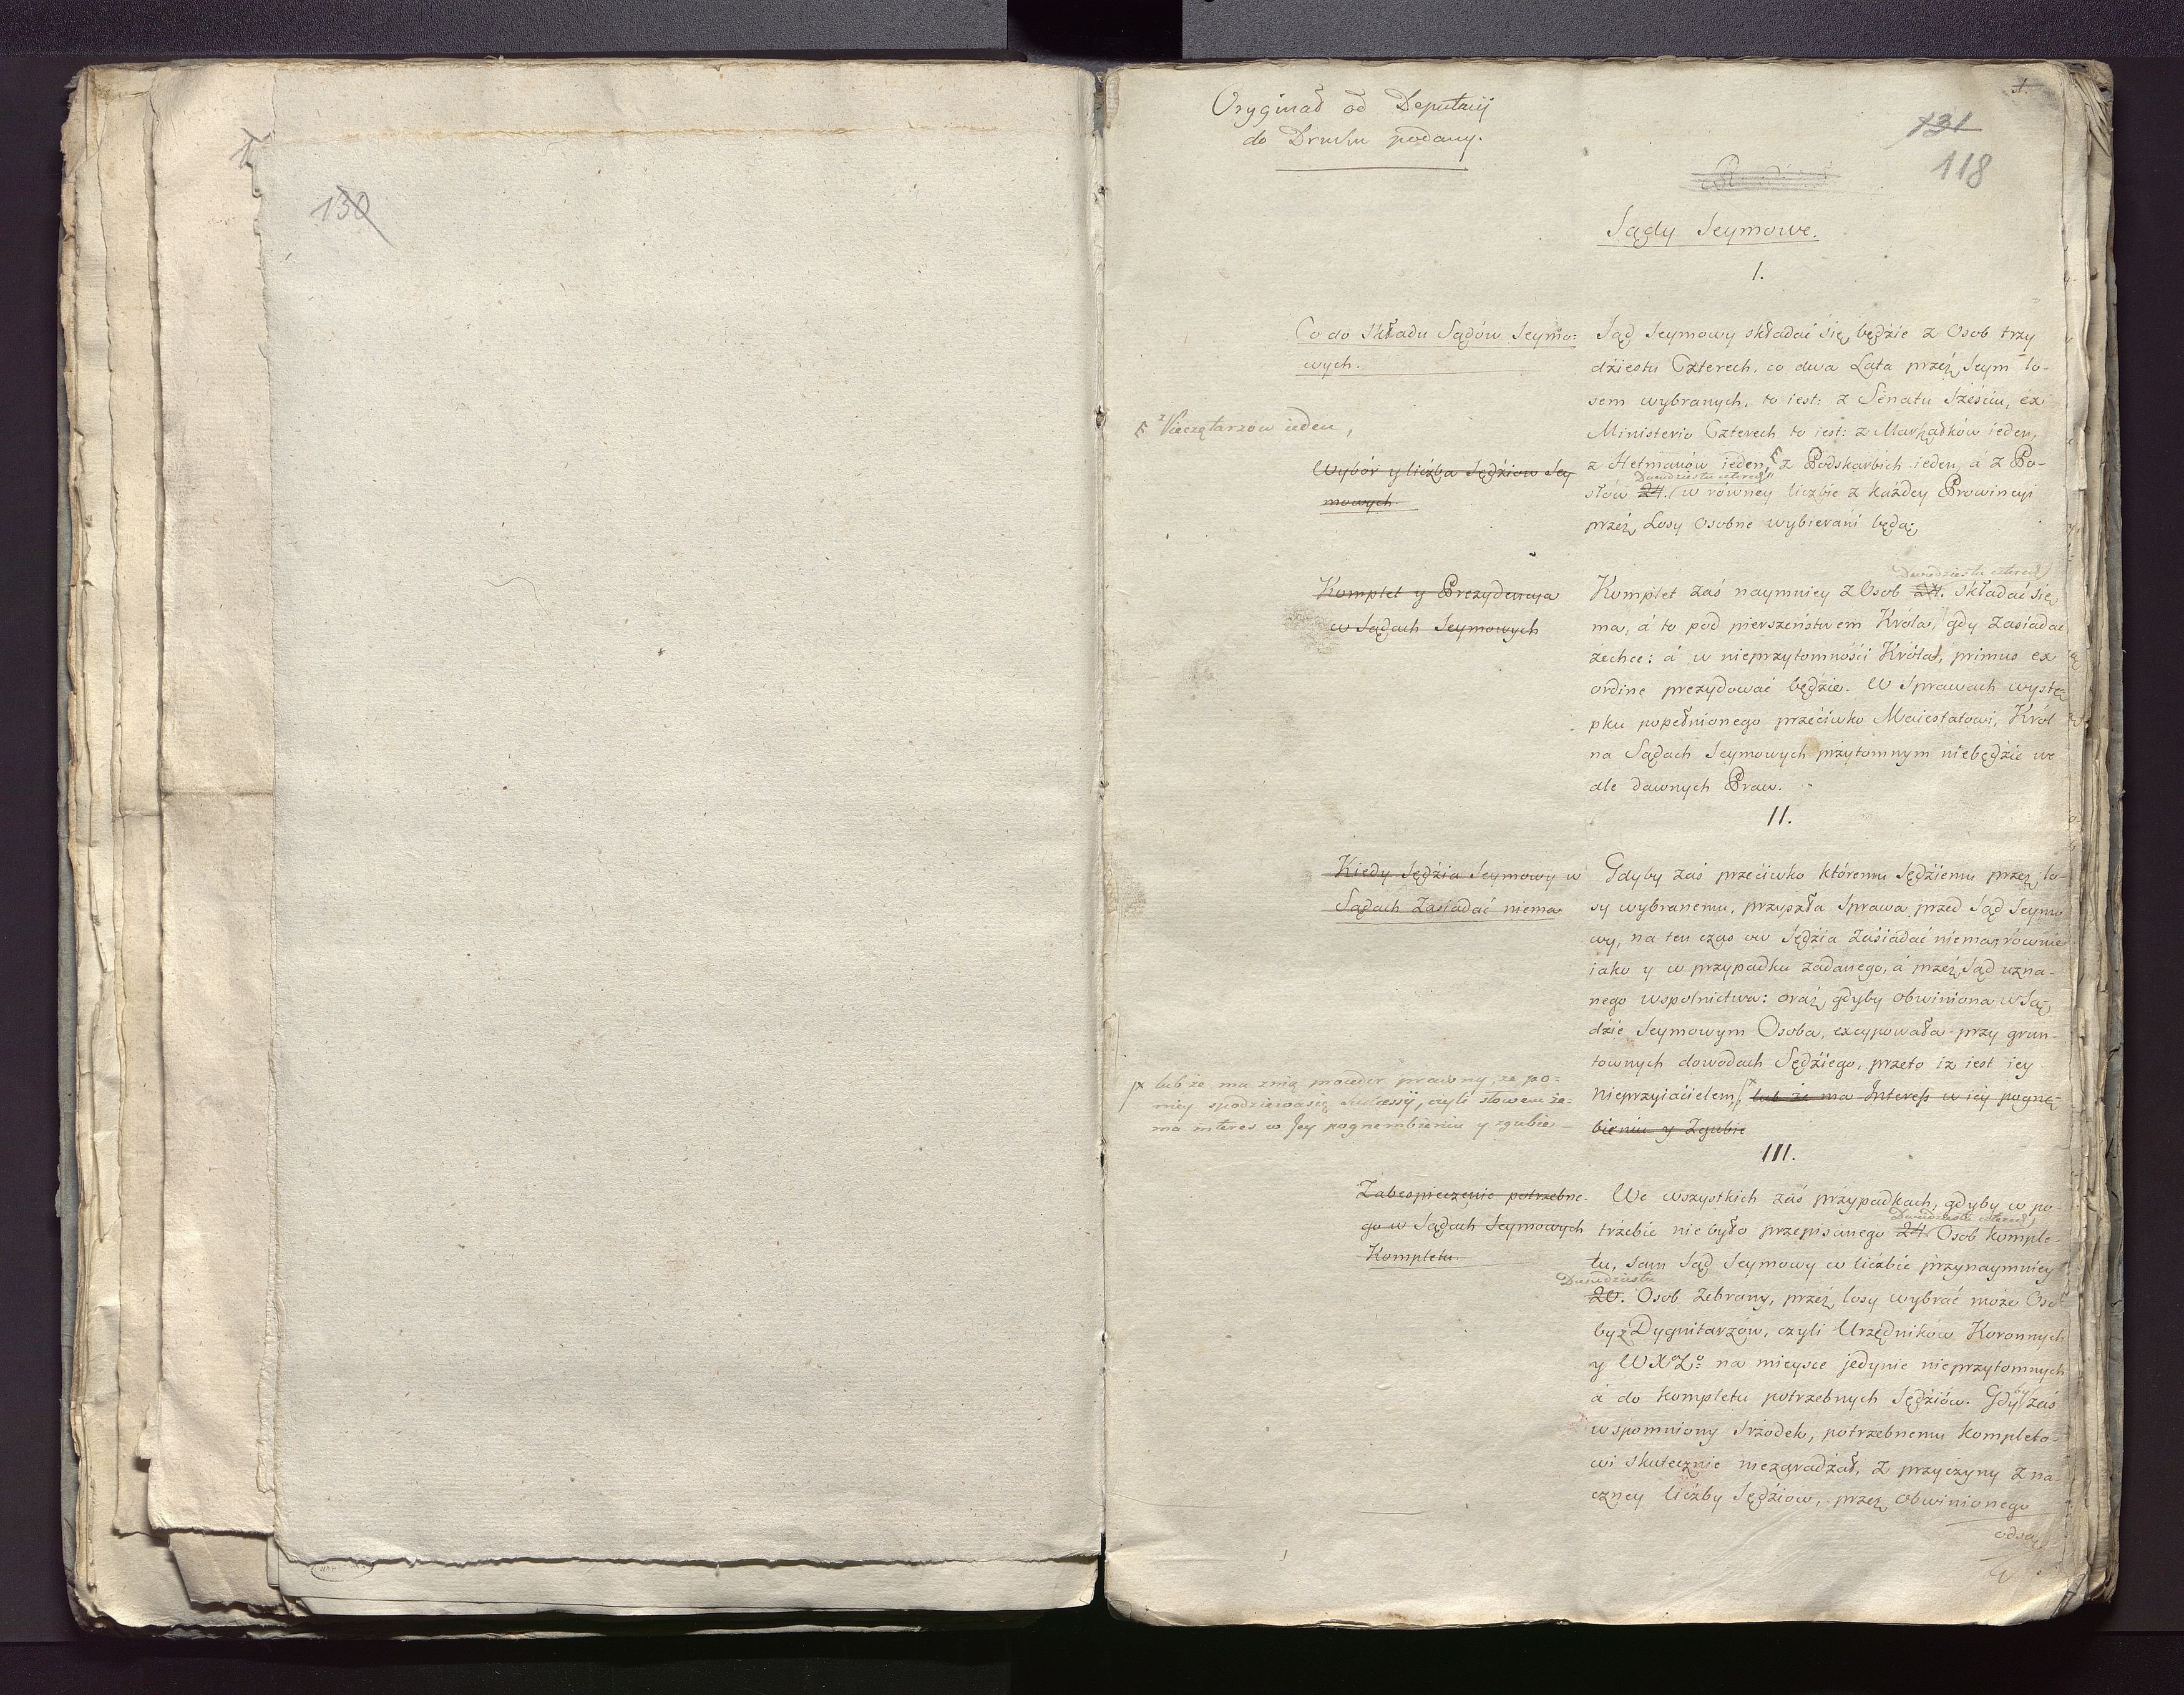 130
Oryginał od Deputacij
do Druku podany.
1.
131
118
Sądy Seymowe.
I.
Co do Składu Sądów Seymo:
wych.
Sąd Seymowy składać się będzie z Osob trzy
dźiestu Czterech, co dwa Lata przez Seym lo-
sem wybranych, to iest: z Senatu Sześciu, ex
Ministerio Czterech to iest: z Marszałków ieden,
z Hetmanów ieden, z Podskarbich ieden, á z Po-
Dwudziestu czterech
słów 24. w równey liczbie z każdey Prowincyi
przez Losy Osobne wybierani będą;
z Pieczętarzow ieden,
Wybór y liczba Sędźiow Sey
mowych.
Komplet y Prezydencya
w Sądach Seymowych
Dwudziestu czterech
Komplet zaś naymniey z Osob 24. składać się
ma, á to pod pierszeństwem Króla, gdy zasiadać
zechce: á w nieprzytomności Króla, primus ex
ordine prezydować będzie. W Sprawach wystę
pku popełnionego przećiwko Maiestatowi, Król
na Sądach Seymowych przytomnym niebędzie we
dle dawnych Praw.
II.
Kiedy Sędźia Seymowy w
Sądach Zasiadać niema
Gdyby zaś przećiwko któremu Sędźiemu przez lo-
sy wybranemu, przyszła Sprawa przed Sąd Seymo
wy, na ten czas ów Sędźia Zasiadać niema, równie
iako y w przypadku zadanego, á przez Sąd uzna-
nego wspolnictwa: oraz gdyby obwiniona w Są
dźie Seymowym Osoba, excypowała przy grun-
townych dowodach Sędźiego, przeto iz iest iey
Nieprzyiaćielem, lub że ma Interess w iey pognę-
bieniu y Zgubie
lub że ma znią proceder prawny, że po-
niey spodziewa się Sukcessij, czyli słowem że:
ma interes w Jey pognembieniu y zgubie
III.
Zabespieczenie potrzebne-
go w Sądach Seymowych
Kompletu.
We wszystkich zaś przypadkach, gdyby w po-
Dwudziestu czterech
trzebie nie było przepisanego 24. Osob komple-
tu, sam Sąd Seymowy w liczbie przynaymniey
Dwudziestu
20. Osob zebrany, przez losy wybrać może Oso
by z Dygnitarzów, czyli Urzędników Koronnych
y W X L: na mieysce jedynie nieprzytomnych
á do kompletu potrzebnych Sędźiów. Gdyby zaś
wspomniony Srzodek, potrzebnemu kompleto-
wi skutecznie niezaradzał, z przyczyny zna-
czney liczby Sędźiow, przez obwinionego
odsą